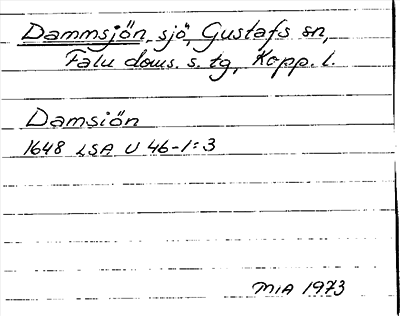 Dammsjön, sjö, Gustafs sn,
Falu doms. s. tg, Kopp. l.
Damsiön
1648 LSA U 46-1:3
MIA 1973